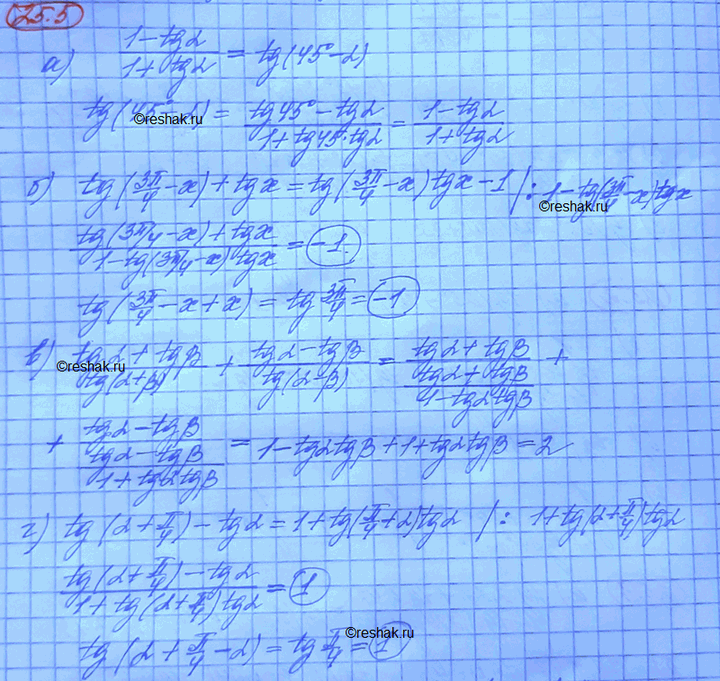 25.5
а) (1-tgα)/(1+tgα) = tg(45°-α)
tg(45°-α) = (tg45°-tgα)/(1+tg45°·tgα) = (1-tgα)/(1+tgα)
©reshak.ru
б) tg(3π/4-x)+tgx = tg(3π/4-x)tgx-1 |: 1-tg(3π/4-x)tgx
©reshak.ru
(tg(3π/4-x)+tgx)/(1-tg(3π/4-x)tgx) = -1.
tg(3π/4-x+x) = tg 3π/4 = -1
в) (tgα+tgβ)/(tg(α+β)) + (tgα-tgβ)/(tg(α-β)) = (tgα+tgβ)/((tgα+tgβ)/(1-tgαtgβ)) +
©reshak.ru
+ (tgα-tgβ)/((tgα-tgβ)/(1+tgαtgβ)) = 1-tgαtgβ+1+tgαtgβ = 2
г) tg(α+π/4)-tgα = 1+tg(π/4+α)tgα |: 1+tg(α+π/4)tgα
(tg(α+π/4)-tgα)/(1+tg(α+π/4)tgα) = 1
tg(α+π/4-α) = tg π/4 = 1
©reshak.ru